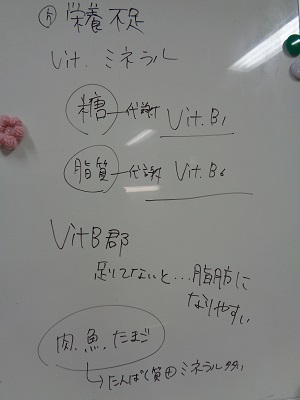 ㋕ 栄養不足
Vit. ミネラル
糖 — 代謝 Vit.B1
脂質 — 代謝 Vit.B6
VitB郡
足りてないと…脂肪に
なりやすい
肉.魚.たまご
→たんぱく質 ミネラル